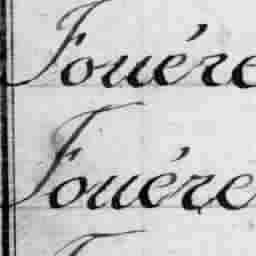 Fouére
Fouére